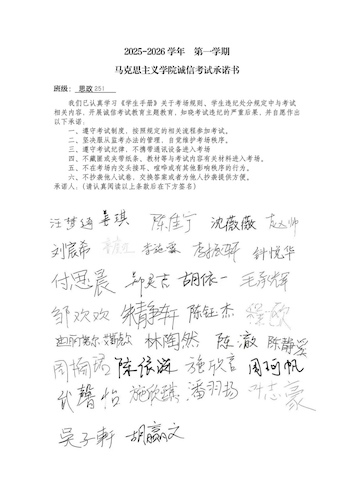 2025-2026学年 第一学期
马克思主义学院诚信考试承诺书
班级：思政251
我们已认真学习《学生手册》关于考场规则、学生违纪处分规定中与考试
相关内容，开展诚信考试教育主题教育，知晓考试违纪的严重后果，并自愿作出
以下承诺：
一、遵守考试制度，按照规定的相关流程参加考试。
二、坚决服从监考办法的管理，自觉维护考场秩序。
三、遵守考试纪律，不携带通讯设备进入考场
四、不藏匿或夹带纸条、教材等与考试内容有关材料进入考场。
五、不在考场内交头接耳、喧哗或其他影响秩序的行为。
六、不抄袭他人试卷、交换答案或者为他人抄袭提供方便。
承诺人：（请认真阅读以上条款后在下方签名）
汪梦婷 吴琪 陈佳宁 沈薇薇
刘宸希 李振骅 钭悦华
付思晨 郑昊吉 胡依一 毛承辉
邹欢欢 朱静轩 陈钰杰 程欧
林陶然 陈澈 陈静雯
周梅瑶 陈谊涵 施欣言 周珂帆
代馨怡 施欣琪 潘羽扬 叶志豪
吴子轩 胡赢文